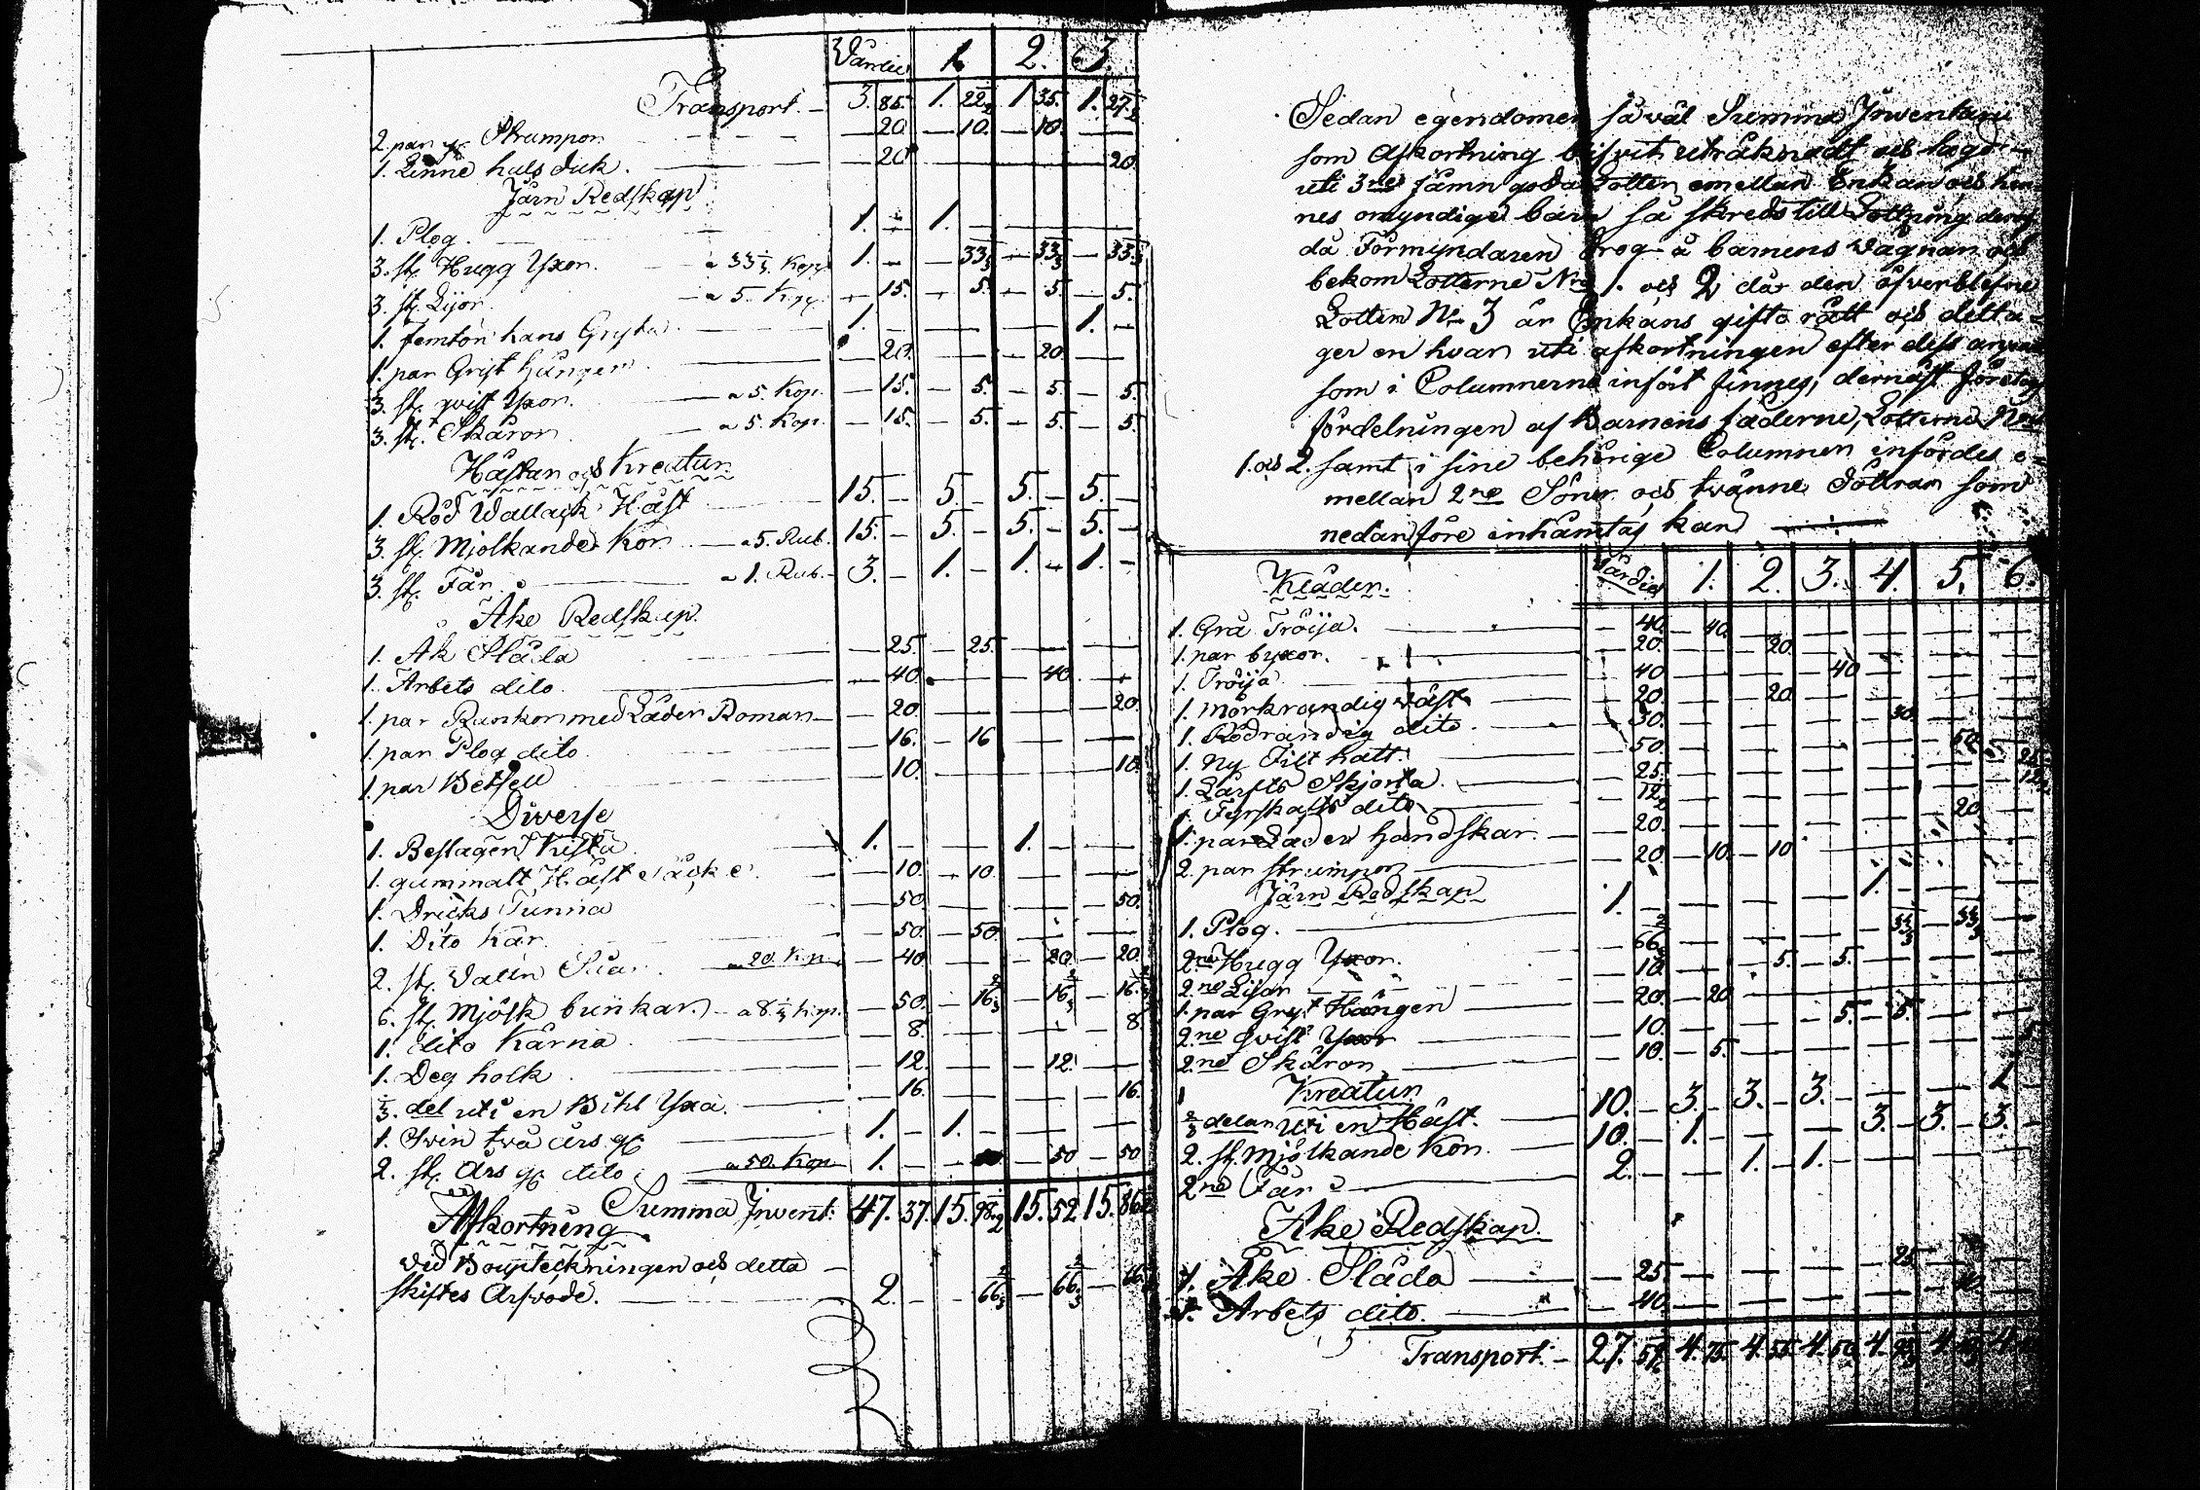 Värdie 1. 2. 3.
Transport. 3. 85. 1. 22 1/2 1. 35. 1. 27 1/2
2. par Strumpor — 20 — 10. — 10. —
1. Linne hals duk. — 20 — 20.
Järn Redskap
1. Plog. 1. — 1. —
3. st. Hugg Yxor. a 33 1/3 Kop. 1. — 33 1/3 — 33 1/3 — 33 1/3
3. st. Lijor a 5. Kop. — 15. — 5. — 5. — 5.
1. femton kans Gryta 1. — 1. —
1. par Gryt hängen — 20. — 20.
3. st. qvist Yxor. a 5. Kop. — 15. — 5. — 5. — 5.
3. st. Skäror a 5. Kop. — 15. — 5. — 5. — 5.
Hästar och Kreatur
1. Röd Wallack Häst 15. — 5. — 5. — 5. —
3. st. Mjölkande Kor a 5. Rub. 15. — 5. — 5. — 5. —
3. st. Får a 1. Rub. 3. — 1. — 1. — 1. —
Åke Redskap.
1. Åk Släda — 25. — 25.
1. Arbets dito — 40. — 40.
1. par Rankor med Läder Roman — 20. — 20.
1. par Plog dito — 16. — 16
1. par Betsell — 10. — 10.
Diverse
1. Beslagen Kista 1. — 1. —
1. gammalt Häst täcke — 10. — 10.
1. Dricks Tunna — 50. — 50.
1. Dito Kar — 50. — 50.
2. st. Vatten Såar a 20. Kop. — 40. — 20. — 20.
6. st. Mjölk bunkar. a 8 1/3 Kop. — 50. — 16 2/3 — 16 2/3 — 16 2/3
1. dito Kärna — 8. — 8.
1. Deg holk — 12. — 12.
1/3. del uti en Bihl Yxa. — 16. — 16.
1. Svin två års gl. 1. — 1. —
2. st. års gl. dito a 50. Kop 1. — 50 — 50
Summa Invent: 47. 37. 15. 98 1/2 15. 52 15. 86 1/2
Afkortning
Vid Bouppteckningen och detta
skiftes Arfvode. 2. — 66 2/3 — 66 2/3 — 66
Sedan egendomen så väl Summa Inventarii
som Afkortning blifvit uträknadt och lagd
uti 3ne jämn goda Lotter emellan Enkan och hen-
nes omyndige barn så skreds till Lottning deraf
då Förmyndaren drog å barnens vägnar och
bekom Lotterne Nro 1. och 2 där den öfverblefne
Lotten No 3 är Enkans gifto rätt och delta-
ger en hvar uti afkortningen efter dess
som i Columnerne infört finnes; dernäst företogs
fördelningen af Barnens fäderne, Lotterne Nro
1. och 2. samt i sine behörige Columner infördes e-
mellan 2ne Söner och tvänne Döttrar som
nedanföre inhämtas kan
Kläder. Värdie 1. 2. 3. 4. 5. 6.
1. Grå Tröija. — 40. — 40.
1. par byxor. — 20. — 20.
1. Tröija — 40 — 40
1. mörkrandig väst — 20. — 20.
1. Rödrandig dito — 30. — 30.
1. ny Filt hatt. — 50. — 50.
1. Lärfts Skjorta — 25. — 25.
1. Fyrskafts dito — 12 1/2 — 12
1. par Läder handskar — 20. — 20.
2. par strumpor — 20. — 10. — 10
Järn Redskap
1. Plog. 1. — 1. —
2ne Hugg Yxor. — 66 2/3 — 33 1/3 — 33 1/3
2ne Lijor — 10. — 5. — 5.
1. par Gryt Hängen — 20. — 20
2ne Qvist Yxor — 10. — 5. — 5.
2ne Skäror — 10. — 5. — 5
Kreatur
2/3 delar uti en Häst. 10. — 3. — 3. — 3. — 1
2. st. Mjölkande Kor. 10. — 1. — 3. — 3. — 3.
2ne Får 2. — 1. — 1. —
Åke Redskap.
1. Åke Släda — 25. — 25.
1. Arbets dito. — 40. — 40.
Transport. 27. 4. 75. 4. 55 4. 50. 4. 4. 4.